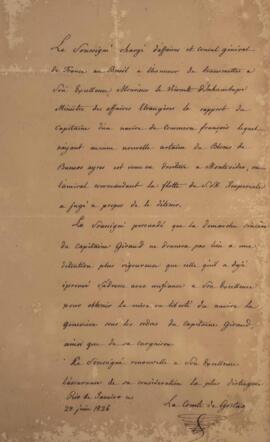 Le Soussigné chargé d'affaires et consul général
de France au Brésil a l'honneur de transmettre a
Son Excellence Monsieur le Vicomte d'Inhambupe
Ministre des affaires Etrangères le rapport du
Capitaine d'un navire de Commerce français lequel
n'ayant aucune nouvelle notion du Blocus de
Buenos ayres est venu en droiture a Montevideo, ou
l'amiral commandant la flotte de S.M. Imperiale
a jugé a propos de le détenir.
Le Soussigné persuadé que la demarche sincère
du Capitaine Giraud ne donnera pas lieu a une
détention plus rigoureuse que celle qu'il a déjà
éprouvé s'adresse avec confiance a Son Excellence
pour obtenir la mise en liberté du navire la
Geneviève sous les ordres du Capitaine Giraud,
ainsi que de sa cargaison
Le Soussigné renouvelle a Son Excellence
l'assurance de sa considération la plus distinguée
Rio de Janeiro ce
29 juin 1826
Le Comte de Gestas